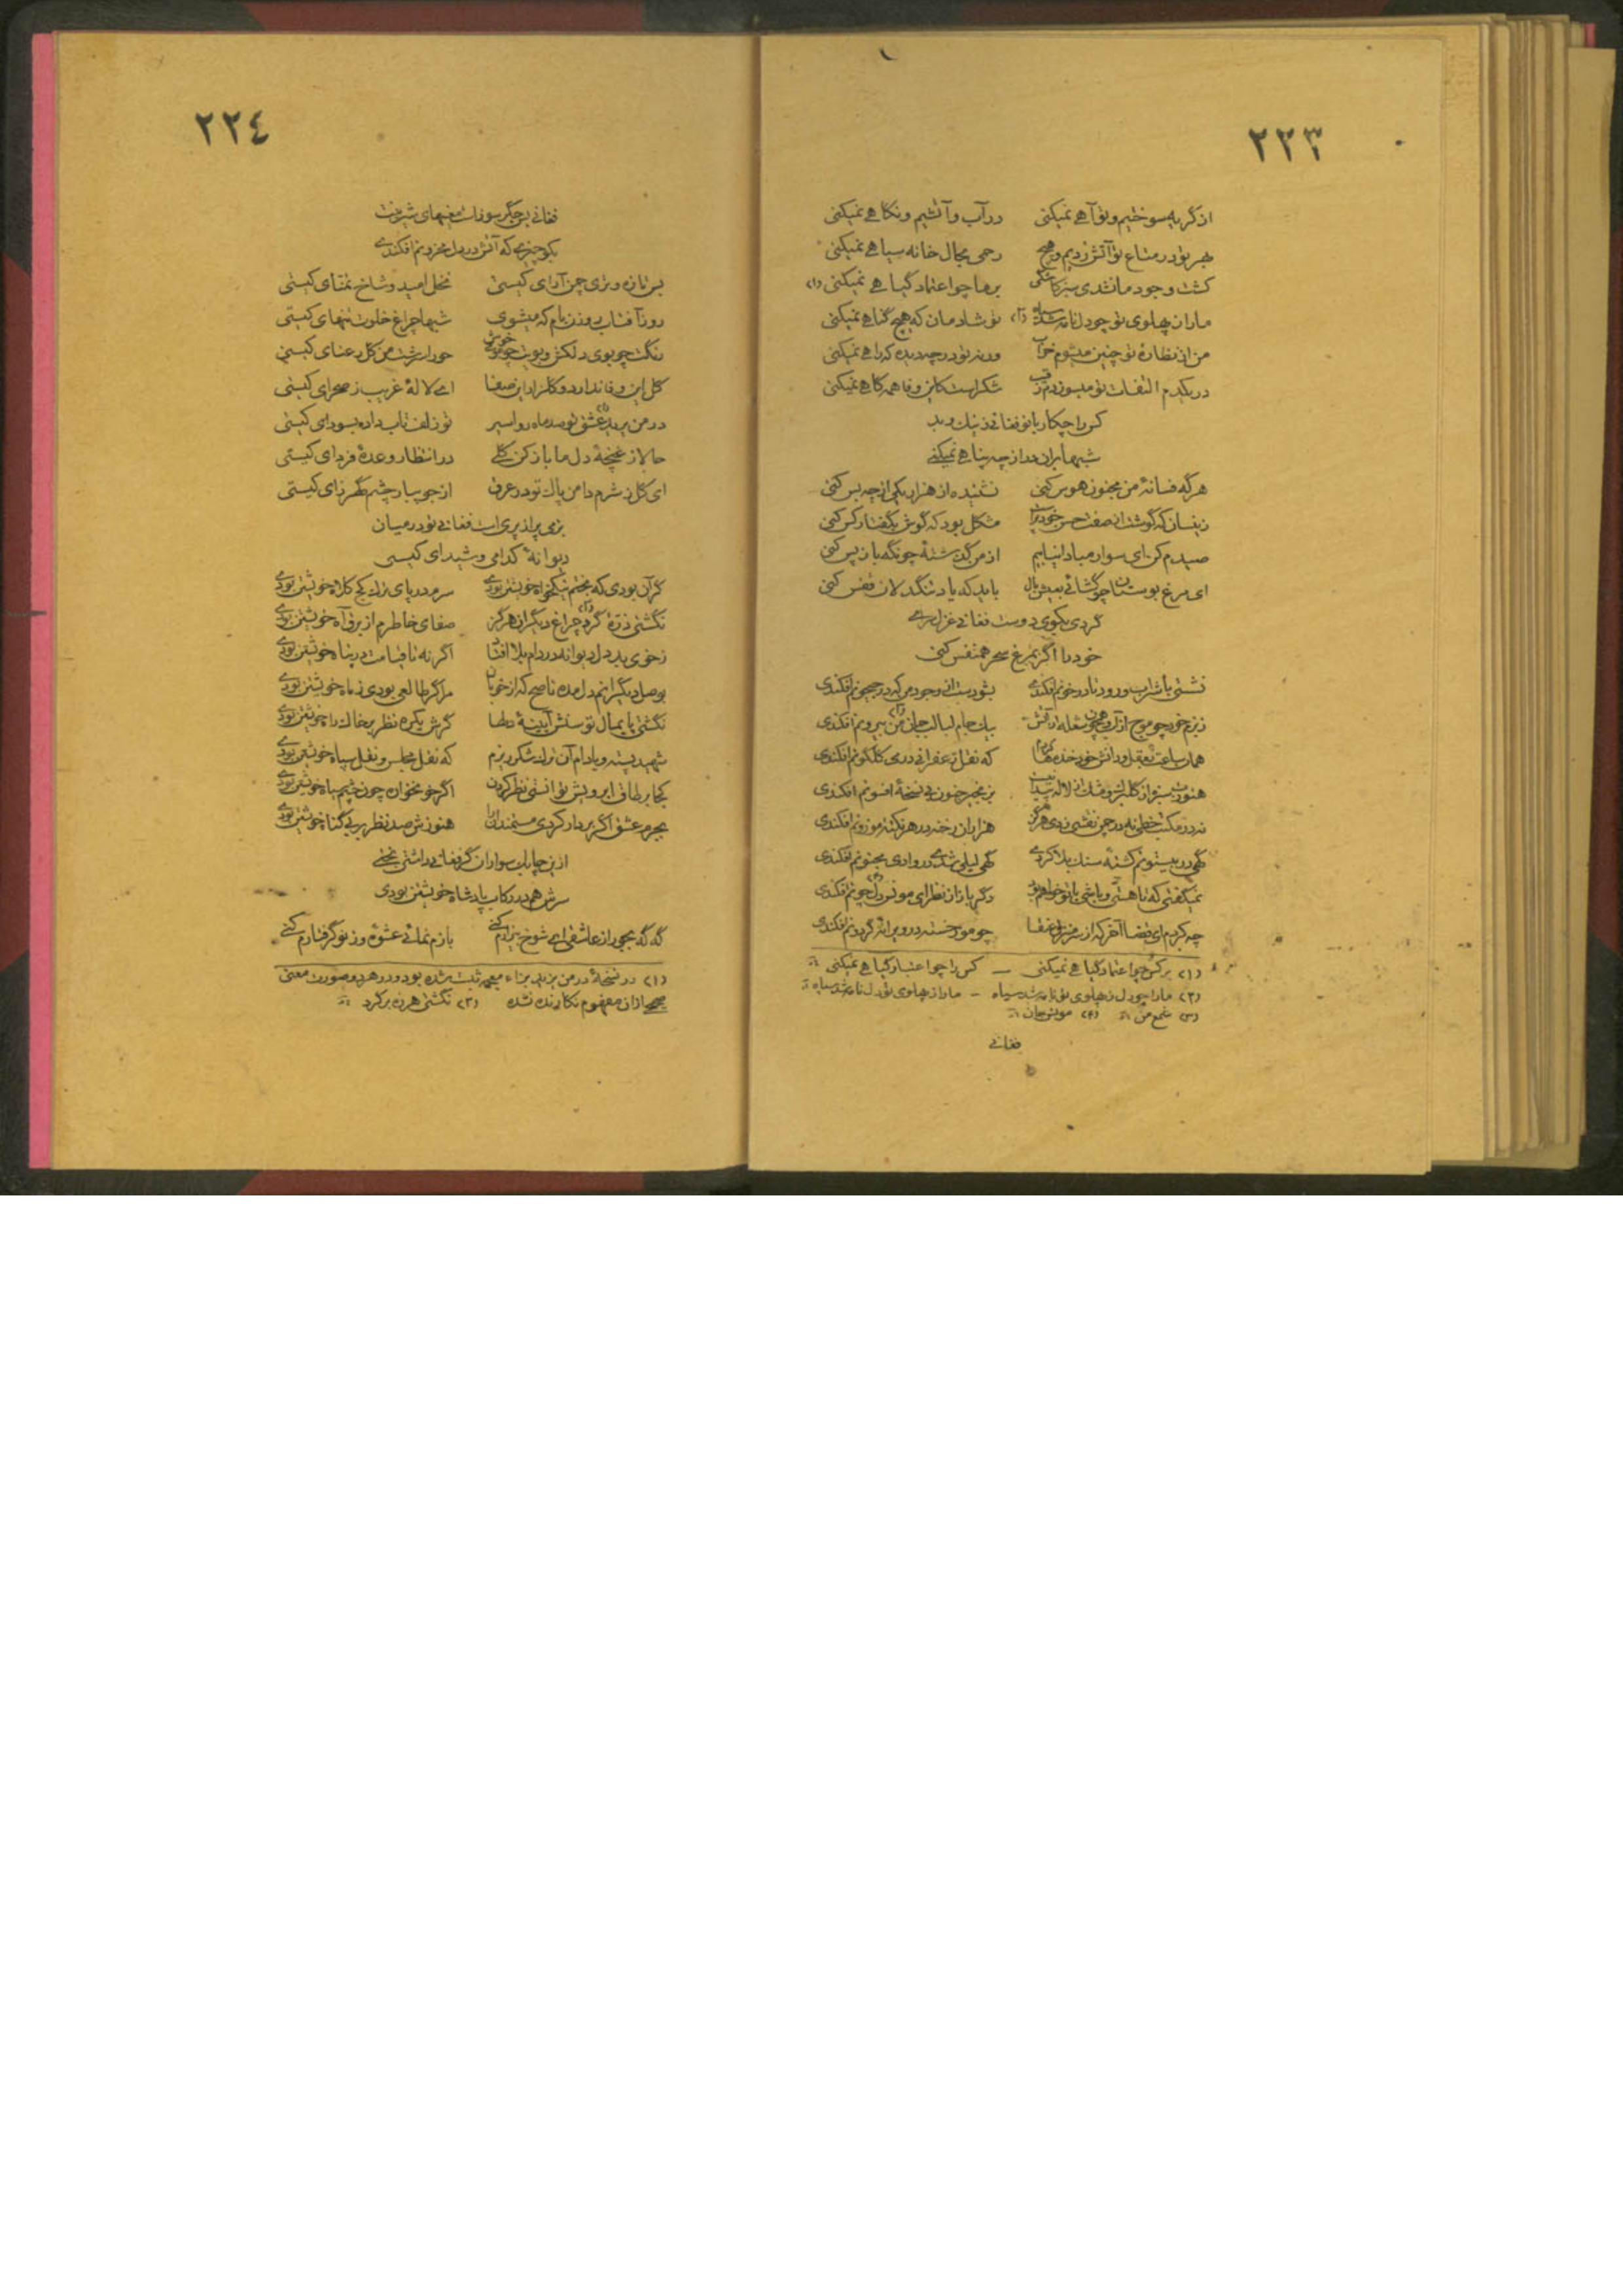 ٢٢٣
از گریه سوختیم و تو آهی نمیکنی در آب و آتشیم و نگاهی نمیکنی
بهر تو در متاع تو آتش زدیم و هیچ رحمی بحال خانه سیاهی نمیکنی
کشت وجود ما نشدی سبز بر ما چو اعتماد گیاهی نمیکنی (۱)
ما را ز پهلوی تو چو دل نامه شد سیاه (۲) تو شادمان که هیچ گناهی نمیکنی
من از نظارهٔ تو چنین میشوم خراب ورنه تو در چه دیده که راهی نمیکنی
در یکدم التفات تو میسوزدم رقیب شکر است کاین وفا همه گاهی نمیکنی
کس را چکار با تو فغانی ز نیک و بد
شبها بران در از چه پناهی نمیکنی
هر گه فسانهٔ من مجنون هوس کنی نشنیده از هزار یکی از چه بس کنی
زینسان که گوشت از صفت حسن خود پر است مشکل بود که گوش بگفتار کس کنی
صیدم کن ای سوار مبادا نیابیم از من گذشتهٔ چو نگه باز پس کنی
ای مرغ بوستان چو گشائی بعیش بال باید که یاد تنگدلان قفس کنی
گردی بکوی دوست فغانی غزل سرای
خود را اگر بمرغ سحر همنفس کنی
نشستی با شراب و رود نا در خونم افکندی
بزم خود چو موج از آب و همچون شعله از آتش بیک جام لبالب جان من بیرونم افکندی
همان ساعت که نقل زعفرانی در می گلگونم افکندی
بزنجیر جنون بی نسخهٔ افسونم افکندی
نه در مکتب خطی نه در چمن نقشی زدی هرگز هزاران رخنه در هر نکتهٔ موزونم افکندی
گهی در بیستونم کشتهٔ سنگ بلا کردی گهی لیلی شدی در وادی مجنونم افکندی
نمیگفتی که تا هستی و باشی با تو خواهم بود دگر باز از نظر ای مونس دل چونم افکندی
چه کردم ای قضا آخر که از سر منزل عنقا چو مور خسته در ویرانهٔ گردونم افکندی
(۱) بر کس چو اعتماد گیاهی نمیکنی — کس را چو اعتبار گیاهی نمیکنی
(۲) ما را چو دل ز پهلوی تو نامه شد سیاه — ما را ز پهلوی تو دل نامه شد سیاه
(۳) شمع من (۴) مونس جان
فغانی
٢٢٤
فغانی بر جگر سوزان
بگو چیزی که آتش در دل محزونم افکندی
بس تازه و تری چمن آرای کیستی نخل امید و شاخ تمنای کیستی
روز آفتاب روزن بام که میشوی شبها چراغ خلوت تنهای کیستی
رنگت چو بوی دلکش و بویت چو روی خوش حور سرشت من گل رعنای کیستی
گل این وفا ندارد و گلزار این صفا ای لالهٔ غریب ز صحرای کیستی
عشق تو صد ماهرو اسیر تو زلف تاب داده بسودای کیستی
حالا ز غنچهٔ دل ما باز کن گلی در انتظار وعدهٔ فردای کیستی
ای گل ز شرم دامن پاک تو در عرق از جویبار چشم گهرزای کیستی
بزمی پر از پری است فغانی تو در میان
دیوانهٔ کدامی و شیدای کیستی
گر آن بودی که بختم نیکخواه خویشتن بودی سرم در پای ترک کج کلاه خویشتن بودی
نگشتی ذرهٔ گرد چراغ دیگران هرگز صفای خاطرم از برق آه خویشتن بودی
ز خوی بد دل دیوانه در دام بلا افتاد اگر نه تا قیامت در پناه خویشتن بودی
بوصل دیگرانم دل مده ناصح که از خوبان مرا گر طالعی بودی ز ماه خویشتن بودی
نگشتی پایمال توسنش آیینهٔ دلها گرش یکره نظر بر خاک راه خویشتن بودی
شهید پسته و بادام آن ترک شکر ریزم که نقل مجلس و نقل سپاه خویشتن بودی
کجا بر طاق ابرویش توانستی نظر کردن اگر خونخواره چون چشم سیاه خویشتن بودی
بجرم عشق اگر بردار کردی مستمندان را هنوزش صد نظر بر بی گناه خویشتن بودی
ازین چابک سواران گر فغانی داشتی بختی
سرش هم در رکاب پادشاه خویشتن بودی
گه گه بجور از عاشقی ای شوخ بیزارم کنی بازم نمائی عشوهٔ وز نو گرفتارم کنی
(۱) در نسخهٔ در من بزید بزاء معجمه ثبت شده بود و در هر دو صورت معنی
صحیح از آن مفهوم نگارنده نشده (۲) نگشتی هرزه بر گرد